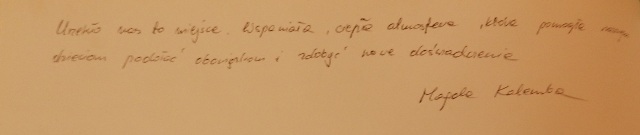 Urzekło nas to miejsce. Wspaniała, ciepła atmosfera, która pomogła naszym
dzieciom podołać obowiązkom i zdobyć nowe doświadczenia
Magda Kalemba